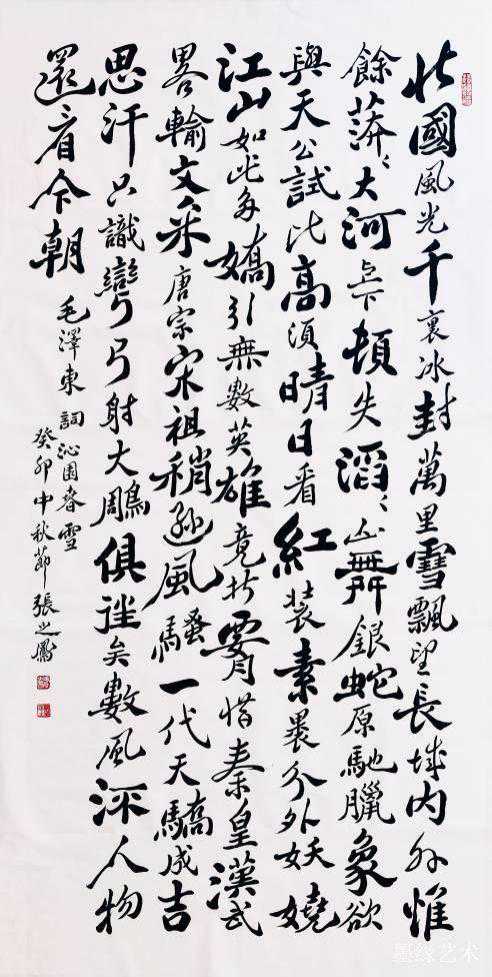 北國風光千裏冰封萬里雪飄望長城内外惟
餘莽〻大河上下頓失滔〻山舞銀蛇原馳臘象欲
與天公試比高須晴日看紅装素裹分外妖嬈
江山如此多嬌引無數英雄竟折腰惜秦皇漢武
畧輸文采唐宗宋祖稍遜風騷一代天驕成吉
思汗只識彎弓射大鵰俱往矣數風流人物
還看今朝
毛澤東詞沁園春雪
癸卯中秋節張之
墨缘艺术